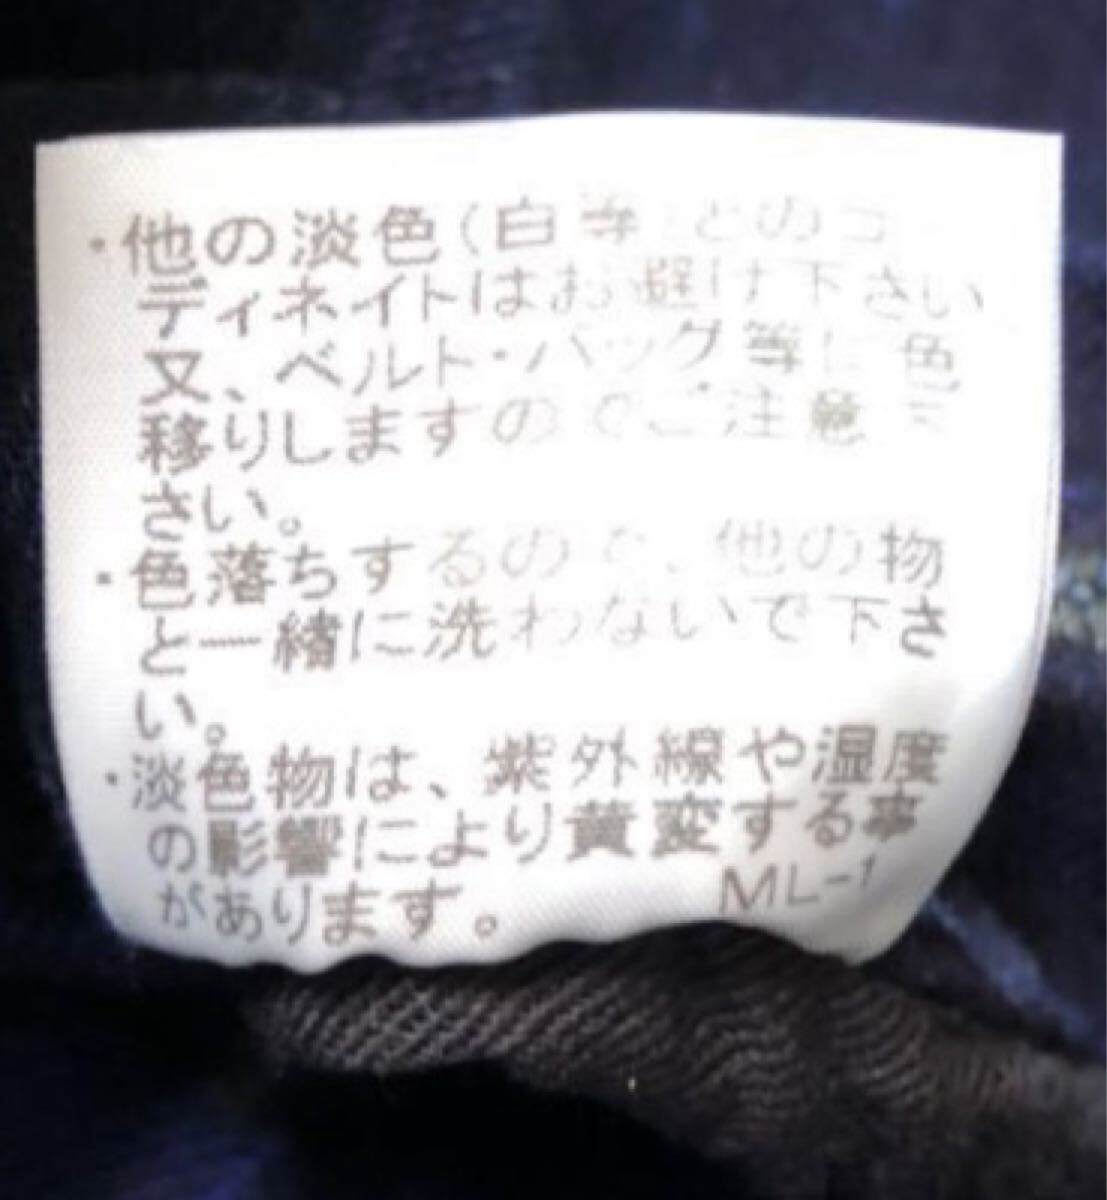 ・他の淡色(白等)とのコー
ディネイトはお避け下さい
又、ベルト・バッグ等に色
移りしますのでご注意下
さい。
・色落ちするので、他の物
と一緒に洗わないで下さ
い。
・淡色物は、紫外線や湿度
の影響により黄変する事
があります。 ML-1